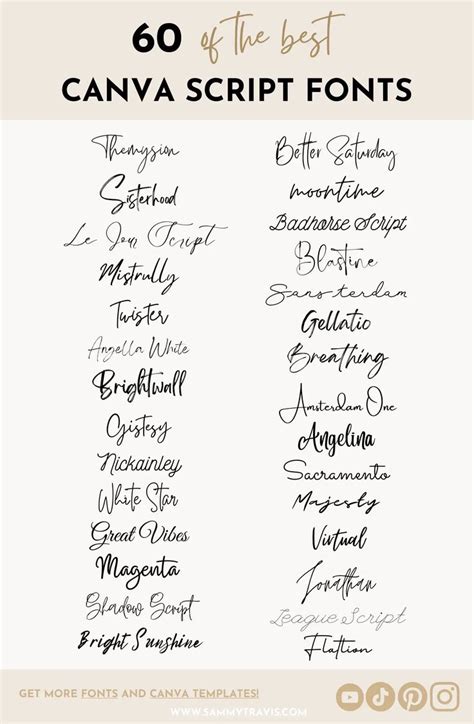 60 of the best
CANVA SCRIPT FONTS
Themysion
Sisterhood
Le Jour Script
Mistrully
Twister
Angella White
Brightwall
Gistesy
Nickainley
White Star
Great Vibes
Magenta
Shadow Script
Bright Sunshine
Better Saturday
moontime
Badhorse Script
Blastine
Sansterdam
Gellatio
Breathing
Amsterdam One
Angelina
Sacramento
Majesty
Virtual
Jonathan
League Script
Flattion
GET MORE FONTS AND CANVA TEMPLATES!
WWW.SAMMYTRAVIS.COM